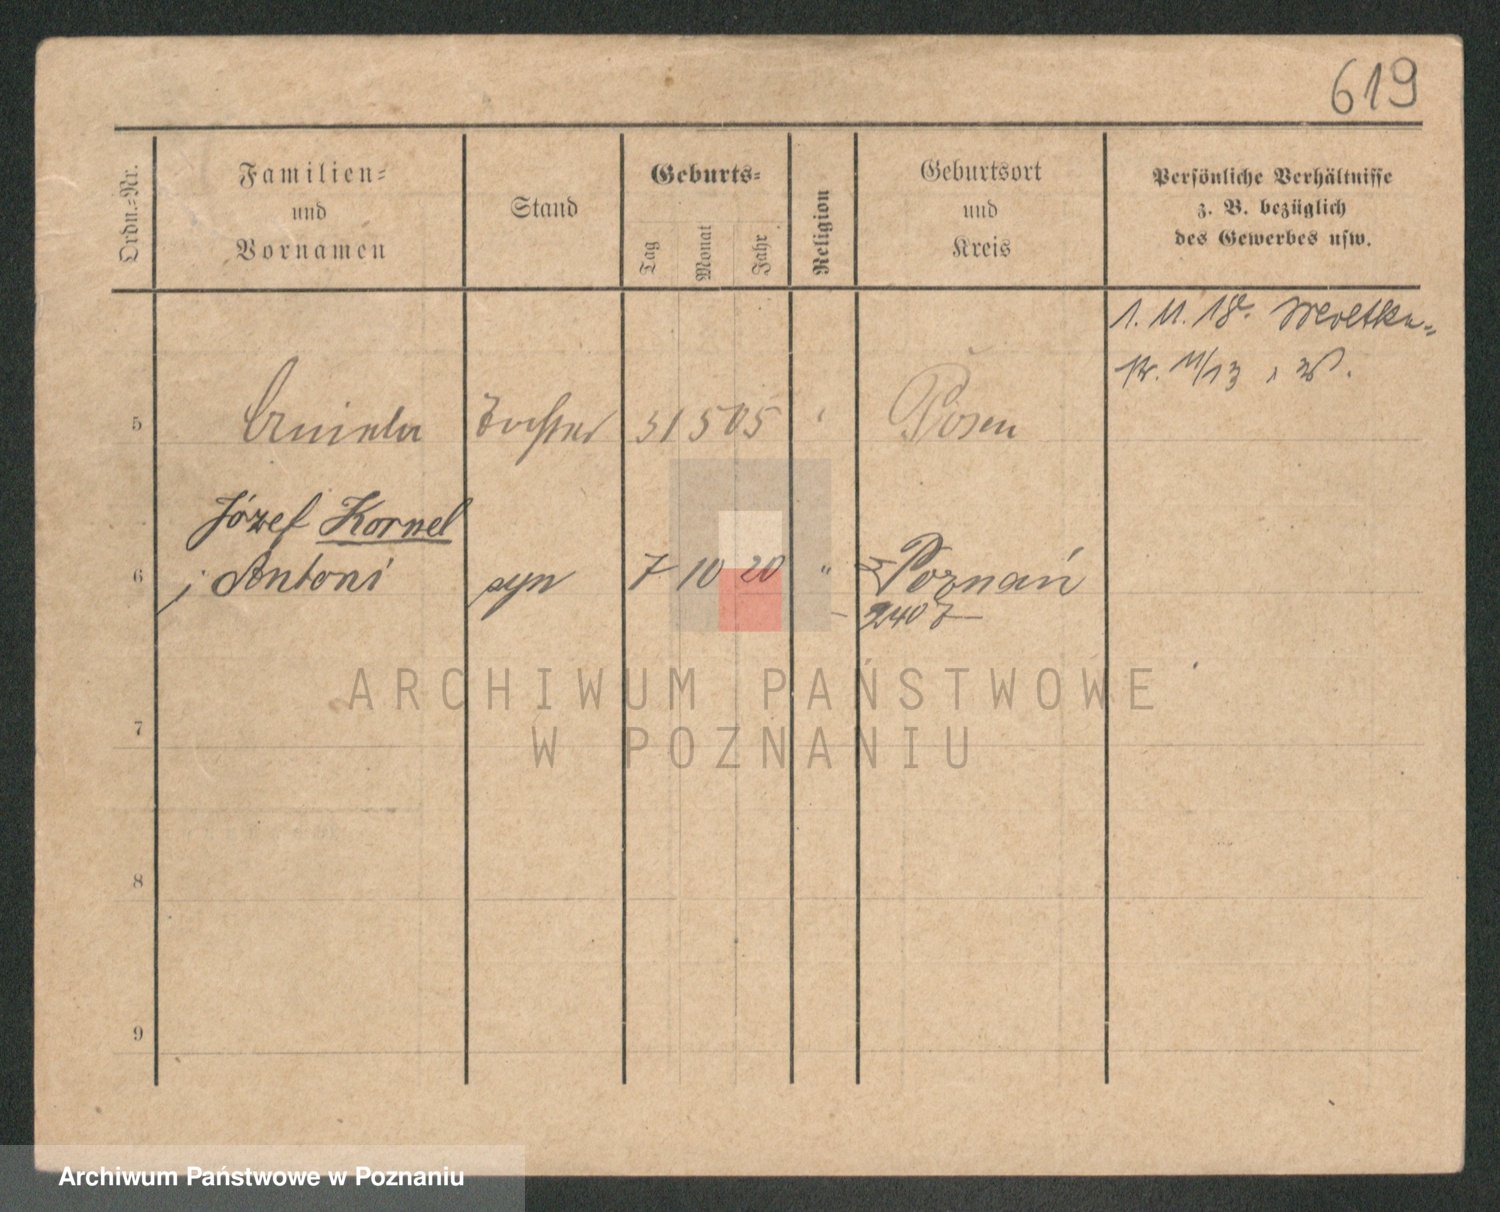 619
Ordn.-Nr.
Familien-
und
Vornamen
Stand
Geburts-
Tag
Monat
Jahr
Religion
Geburtsort
und
Kreis
Persönliche Verhältnisse
z. B. bezüglich
des Gewerbes usw.
1. 11. 18.
11/13
5 Aniela Tochter 31 5 05 Posen
Józef Kornel
6 i Antoni syn 7 10 20 " Poznań
2407
7
8
9
ARCHIWUM PAŃSTWOWE
W POZNANIU
Archiwum Państwowe w Poznaniu